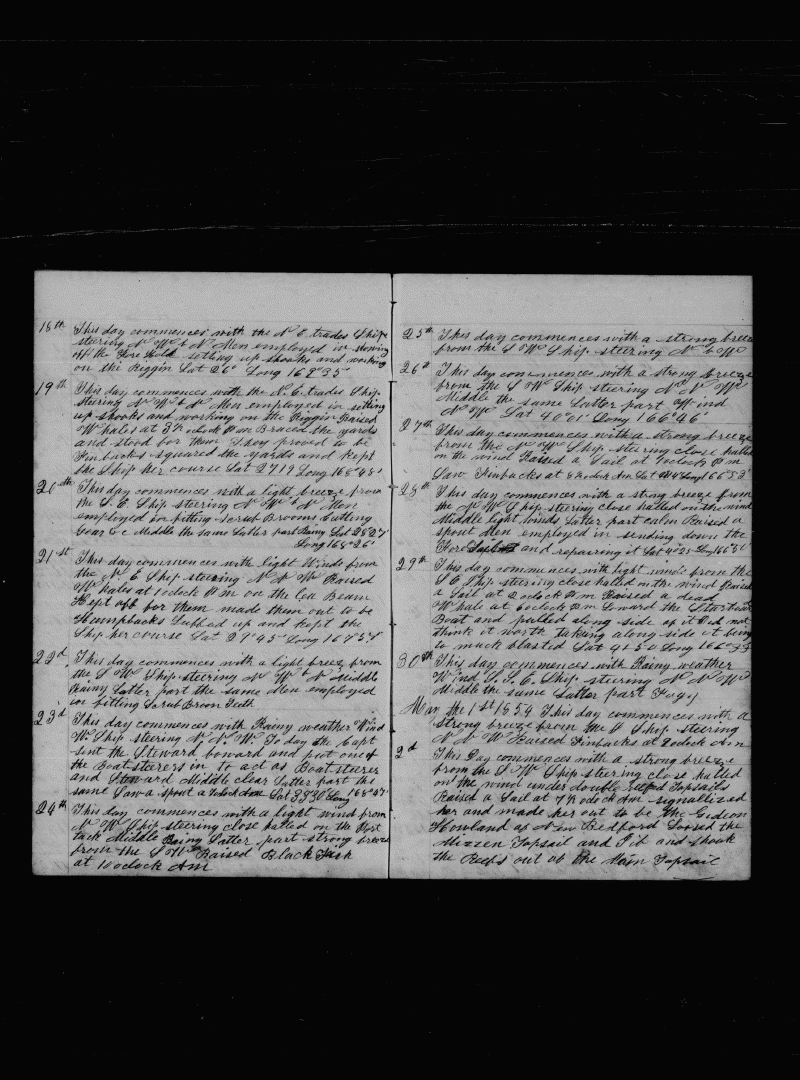 18th This day commences with the N E trades Ship
steering N W b N Men employed in stowing
off the Fore Hold setting up shooks and working
on the Riggin Lat 26° Long 168°35'
19th This day commences with the N. E trades Ship
steering N W b N Men employed in setting
up shooks and working on the Riggin Raised
Whales at 3½ oclock P m Braced the yards
and stood for them They proved to be
Finbacks squared the yards and kept
the Ship her course Lat 27 19 Long 168°48'
20th This day commences with a light breeze from
the S. E. Ship steering N W b N Men
employed in fitting scrub Brooms Cutting
Gear &c Middle the same Latter part Rainy Lat 28 27
Long 168°26'
21st This day commences with light Winds from
the N. E Ship steering N N W Raised
Whales at 1 oclock P m on the Lea Beam
Kept off for them made them out to be
Humpbacks Luffed up and kept the
Ship her course Lat 29°45' Long 167°57'
22d This day commences with a light breeze from
the S W Ship steering N W b N Middle
Rainy Latter part the same Men employed
in fitting Scrub Broom
23d This day commences with Rainy weather Wind
W. Ship steering N N W To day the Capt
sent the Steward forward and put one of
the Boatsteerers in to act as Boat steerer
and Steward Middle clear Latter part the
same Saw a spout a 7 oclock Am Lat 33 30 Long 168°47'
24th This day commences with a light wind from
N W Ship steering close halled on the Port
tack Middle Rainy Latter part strong breeze
from the S W Raised Black Fish
at 10 oclock Am
25th This day commences with a strong breeze
from the S W Ship steering N b W
26th This day commences with a strong breeze
from the S W Ship steering N N W
Middle the same Latter part Wind
N W Lat 40°01' Long 166°46'
27th This day commences with a strong breeze
from the N W Ship steering close halled
on the wind Raised a Sail at 7 oclock P m
Saw Finbacks at 8½ oclock Am Lat Long 166°53'
28th This day commences with a strong breeze from
the N W Ship steering close halled on the wind
Middle light winds Latter part calm Raised a
spout Men employed in sending down the
Fore and repairing it Lat 42 25 Long 166°50'
29th This day commences with light winds from the
S E Ship steering close halled on the wind Raised
a Sail at 2 oclock P m Raised a dead
Whale at 6 oclock P m Loward the Starboard
Boat and pulled along side of it Did not
think it worth taking along side it being
to much blasted Lat 41 50 Long 166°35
30th This day commences with Rainy weather
Wind S. S. E. Ship steering N N W
Middle the same Latter part Fogy
May the 1st 1854 This day commences with a
strong breeze from the S Ship steering
N N W Raised Finbacks at 2 oclock Am
2d This Day commences with a strong breeze
from the S W Ship steering close halled
on the wind under double Reefed Topsails
Raised a Sail at 7½ oclock Am signallized
her and made her out to be the Gideon
Howland of New Bedford Loosed the
Mizzen Topsail and Jib and shook
the Reefs out of the Main Topsail